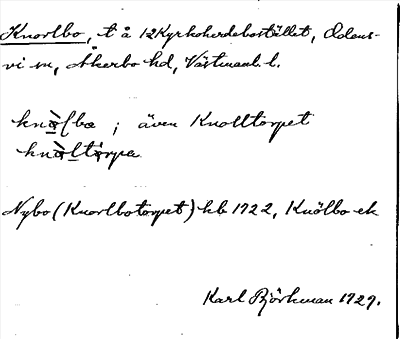 Knorlbo, t å 12 Kyrkoherdebostället, Odens-
vi sn, Åkerbo hd, Västmanl. l.
knòlba ; även Knolltorpet
knòltòrpa
Nybo (Knorlbotorpet) hb 1722, Knölbo ek
Karl Björkman 1929.